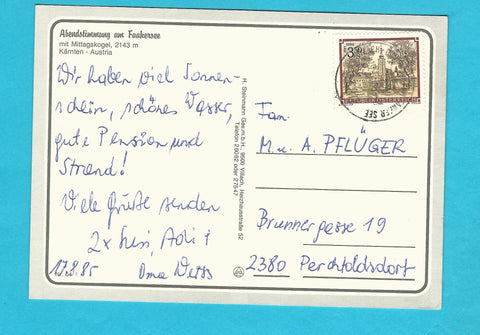 Abendstimmung am Faakersee
mit Mittagskogel, 2143 m
Kärnten - Austria
Wir haben viel Sonnen-
schein, schönes Wasser,
gute Pension und
Strand!
Viele Grüße senden
2x
17.8.85 Oma
H. Steinmann Ges.m.b.H., 9500 Villach, Heizhausstraße 52
Telefon 28052 oder 27547
REPUBLIK ÖSTERREICH
SEE
Fam.
M. u. A. PFLÜGER
Brunnergasse 19
2380 Perchtoldsdorf